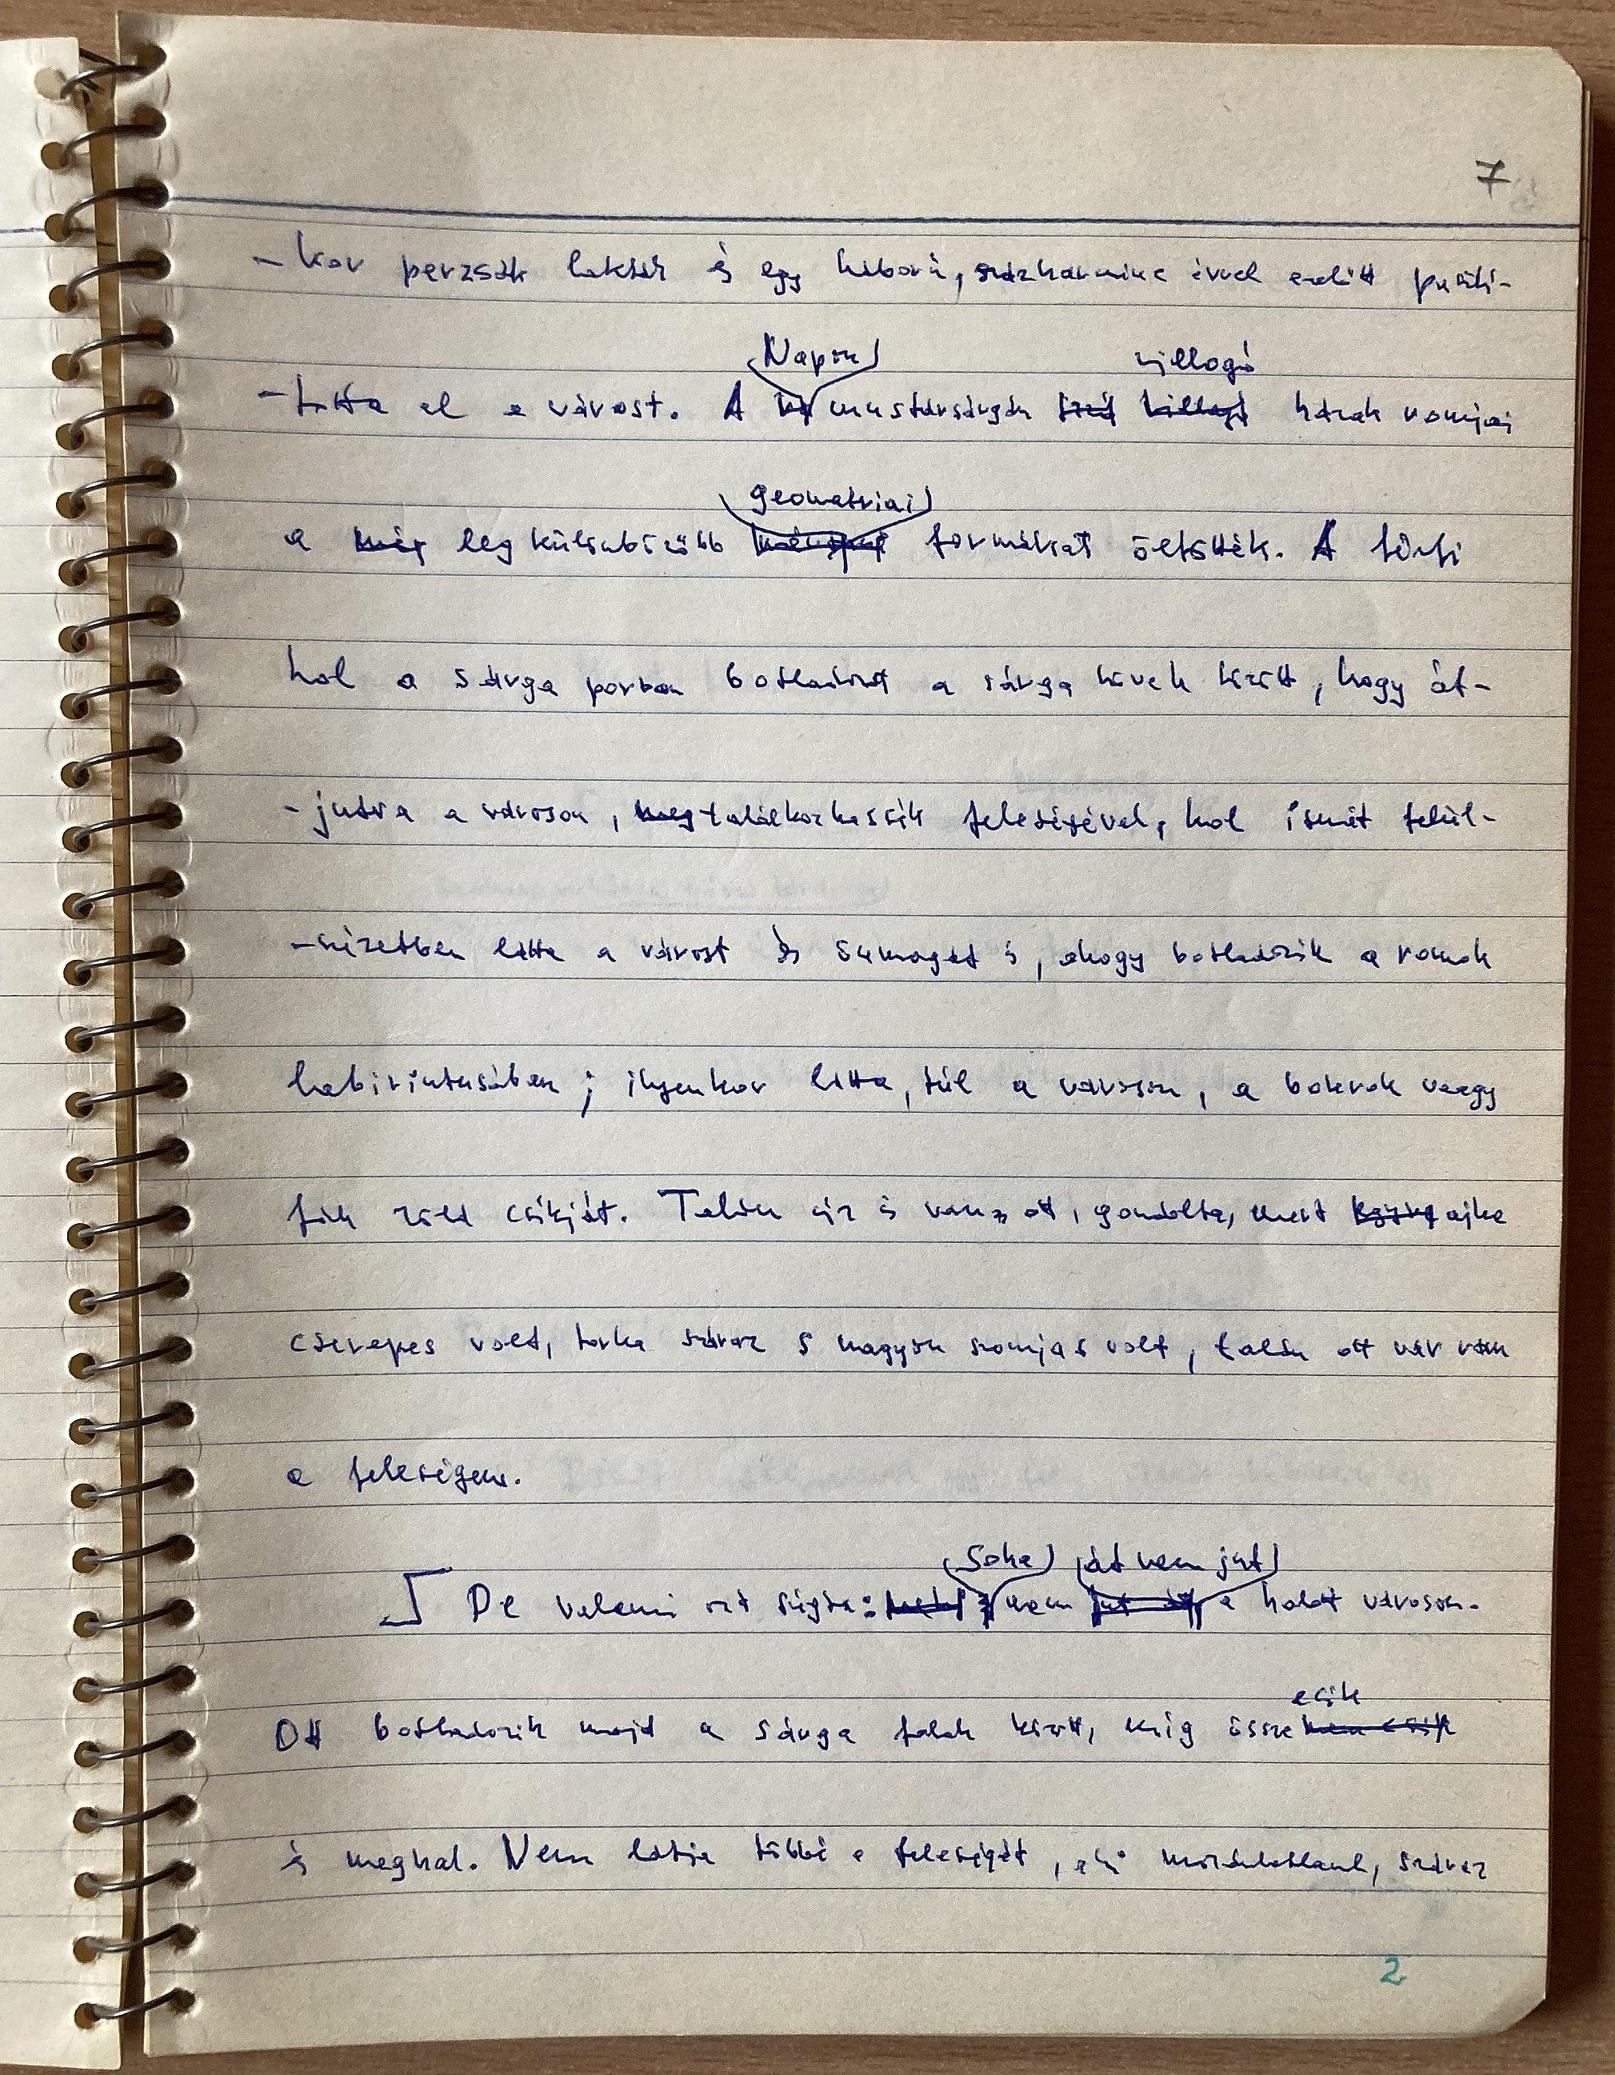 7
-kor perzsák lakták és egy háború, százharminc évvel ezelőtt pusztí-
Napon villogó
-totta el a várost. A mustársárgán házak romjai
geometriai
a legkülönbözőbb formákat öltötték. A férfi
hol a sárga porban botladozott a sárga kövek között, hogy át-
-jutva a városon, találkozhassék feleségével, hol ismét felül-
-nézetben látta a várost és önmagát is, ahogy botladozik a romok
labirintusában; ilyenkor látta, túl a városon, a bokrok vagy
fák zöld csíkját. Talán víz is van ott, gondolta, mert ajka
cserepes volt, torka száraz s nagyon szomjas volt, talán ott vár rám
a feleségem.
Soha át nem jut
De valami azt súgta: nem a holt városon.
esik
Ott botladozik majd a sárga falak között, míg össze
és meghal. Nem látja többé a feleségét, aki mozdulatlanul, száraz
2